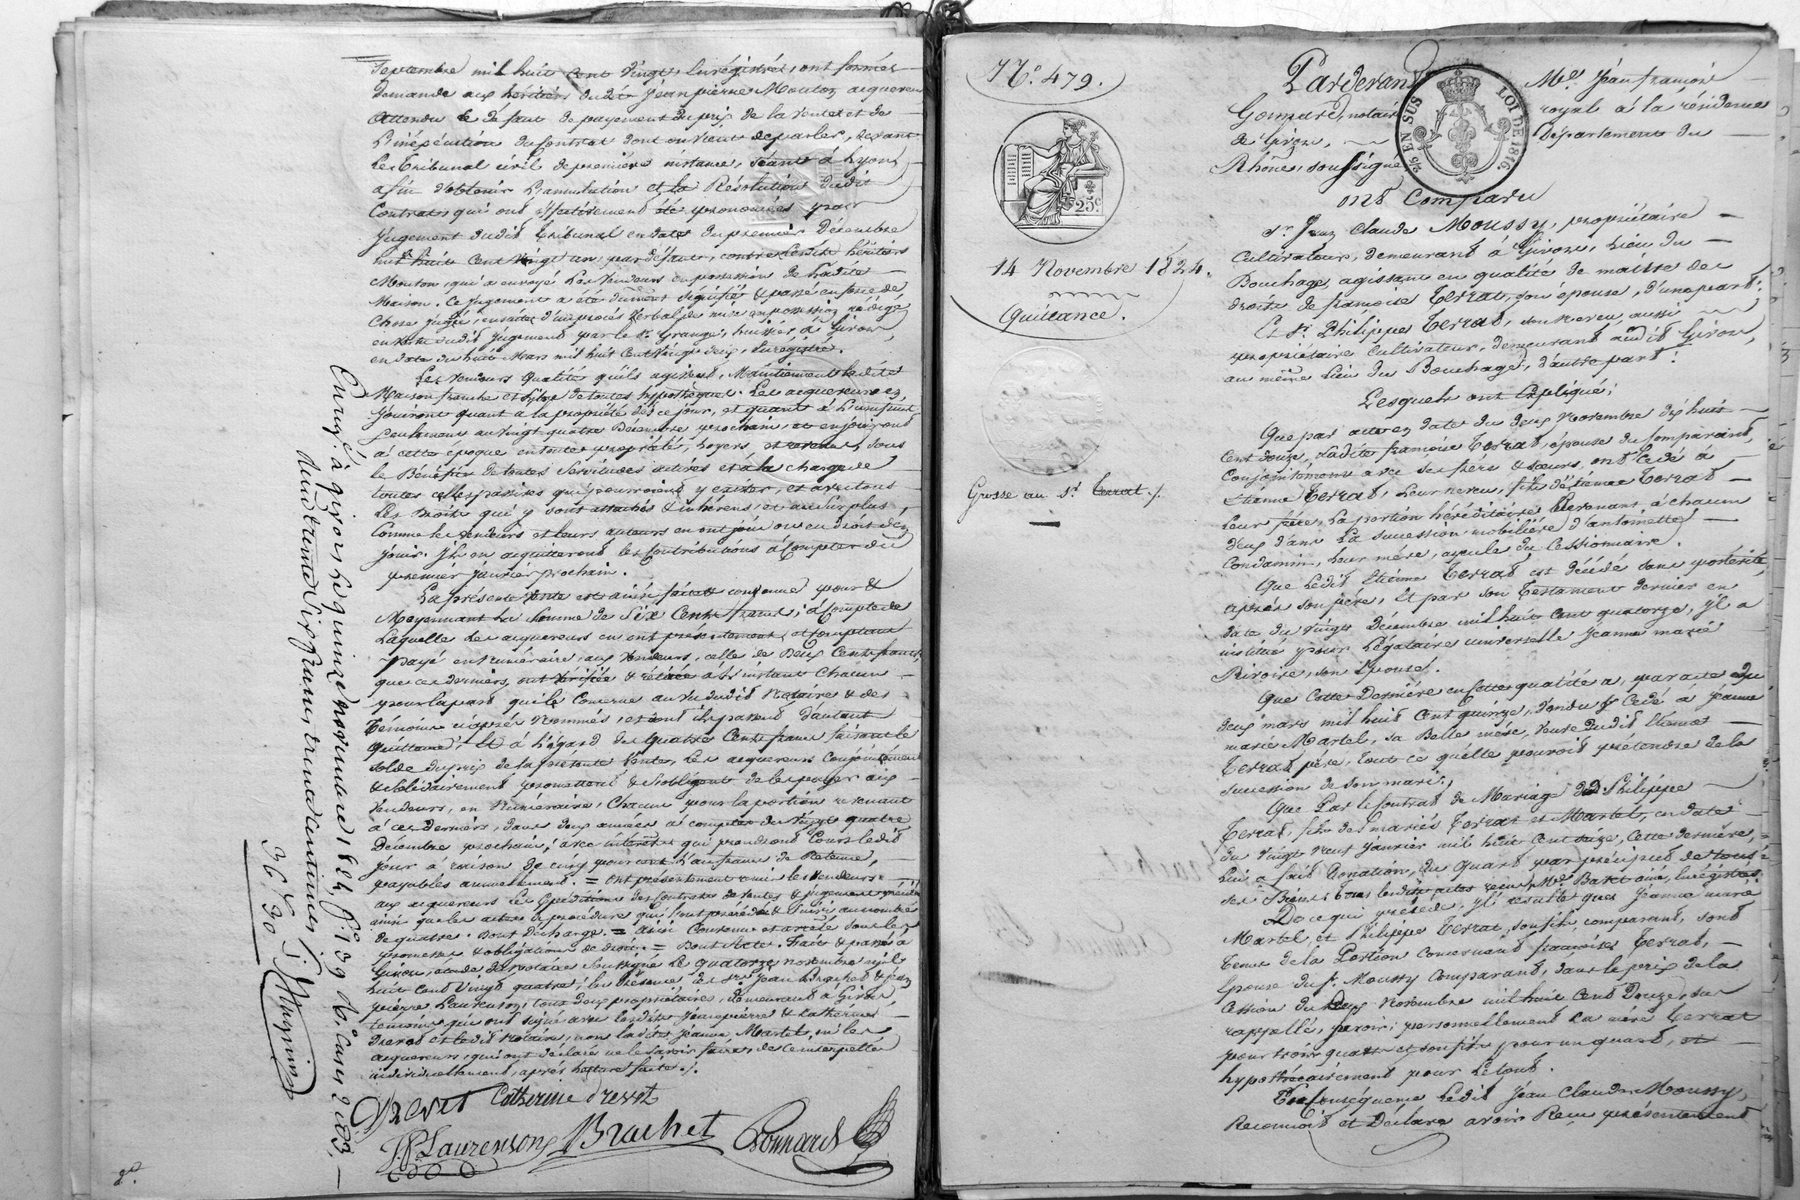 Septembre mil huit cent vingt, Enrégistré, ont formés
demande aux héritiers dudit Jean pierre Mouton acquereur
attendu le défaut de payement du prix de la vente et de
L'inéxécution du Contrat dont on vient de parler, devant
Le Tribunal civil de première instance, séant à Lyon,
afin d'obtenir L'annulation et la Résolution dudit
Contrat, qui ont éffectivement été prononcées par
Jugement dudit tribunal en date du premier Décembre
mil huit Cent vingt un par défaut, contre lesdits héritiers
Mouton, qui a envoyé Les Vendeurs en possession de Ladite
Maison. Ce Jugement a été dûment signifié & passé en force de
Chose jugée, ensuite d'un procès verbal de mise en possession rédigé
en vertu dudit Jugement par le Sr. Grange, huissier à Givors,
en date du huit Mars mil huit Cent vingt deux, Enrégistré.
Les vendeurs qualités qu'ils agissent, Maintiennent ladite
Maison franche et Libre de toutes hypothèques. Les acquereurs en
Jouiront quant à la propriété dès ce jour, et quant à L'usufruit
seulement au vingt quatre Décembre prochain, et en jouiront
à cette époque en toute propriété, loyers, et revenus, sous
le Bénéfice de toutes Servitudes actives et à la charge de
toutes celles passives qui pourroient y exister, et avec tous
Les Droits qui y sont attachés & inhérens, et au surplus,
Comme les vendeurs et leurs auteurs en ont joui ou eu droit d'en
jouir. Ils en acquitteront les Contributions à compter du
premier Janvier prochain.
La présente Vente est ainsi faite & consonne pour &
Moyennant la somme de Six Cents francs, à Compte de
Laquelle Les acquereurs en ont présentement, et comptant
payé en Numéraire, aux Vendeurs, celle de Deux Cents francs,
que ces derniers, ont vérifiée & retirée à L'instant Chacun
pour la part qui le Concerne au vu dudit Notaire & des
témoins ci après Nommés, et dont ils passent d'autant
quittance; Et à l'égard des quatre Cents francs faisant le
solde du prix de la présente Vente, Les acquereurs Conjointement
& solidairement promettent & s'obligent de les payer aux
Vendeurs, en Numéraire, Chacun pour la portion revenant
à ces derniers, dans deux années à compter du Vingt quatre
Décembre prochain, avec intérêts qui prendront Cours ledit
Jour à raison de cinq pour cent L'an sans de Retenue,
payables annuellement. = Ont présentement remis les Vendeurs
aux acquereurs les Expéditions des Contrats de ventes & Jugement précités
ainsi que les actes de procédure qui l'ont précédé & suivi au nombre
de quatre. Dont décharge. = ainsi Convenu et arrêté sous les
promesses & obligations de droit. = Dont Acte. Fait & passé à
Givors, étude du Notaire soussigné Le quatorze novembre mil
huit Cent Vingt quatre, En présence de Srs. Jean Brachet & Jean
pierre Laurenson, tous deux propriétaires, demeurant à Givors,
témoins qui ont signé avec lesdits Jean pierre & Catherine
Drevet et ledit Notaire, non ladite Jeanne Martel, ni les
acquereurs, qui ont déclaré ne le savoir faire, de ce interpellés
individuellement, après Lecture faite./.
Drevet Catherine Drevet
J.P. Laurenson Brachet Gonnard
2e.
Enrgé à givors le quinze novembre 1824, f° 139 R° Case 2 et 3,
N° 479.
25c
14 Novembre 1824.
Quittance.
Grosse au Sr. Terrat./.
2/5 EN SUS LOI DE 1816
Pardevant Me. Jean françois
Gonnard, notaire royal à la résidence
de Givors, Département du
Rhône, soussigné
ont Comparu
Sr. Jean Claude Moussy, propriétaire
Cultivateur, demeurant à Givors, Lieu du
Bouchage, agissant en qualité de maître des
droits de françoise Terrat, son épouse, d'une part;
Et Sr. Philippe Terrat, son neveu, aussi
propriétaire Cultivateur, demeurant audit Givors,
au même Lieu du Bouchage, d'autre part:
Lesquels ont Expliqué;
Que par acte en date du deux Novembre dix huit
Cent douze, Ladite françoise Terrat, épouse du Comparant,
Conjointement avec ses frères & soeurs, ont Cédé à
Etienne Terrat, Leur neveu, fils d'Etienne Terrat
Leur frère, La portion héréditaire Revenant à chacun
d'eux dans La succession mobilière d'antoinette
Condamin, Leur mère, ayeule du Cessionnaire.
Que Ledit Etienne Terrat est décédé sans postérité,
après son père, Et par son Testament dernier en
date du Vingt Décembre mil huit Cent quatorze, il a
institué pour Légataire universelle Jeanne marie
Rivoire, son Epouse.
Que Cette Dernière en Cette qualité a, par acte du
deux mars mil huit Cent quinze, Vendu & Cédé à Jeanne
marie Martel, sa Belle mère, veuve dudit Etienne
Terrat père, tout ce qu'elle pouvoit prétendre de la
succession de son mari;
Que Par le Contrat de Mariage de Philippe
Terrat, fils des mariés Terrat et Martel, en date
du Vingt Neuf Janvier mil huit Cent seize, Cette dernière,
Lui a fait Donation, du quart par préciput de tous
ses Biens; tous lesdits actes reçus Me. Baret aîné, Enrégistrés
De ce qui précède, il résulte que Jeanne marie
Martel, et Philippe Terrat, son fils, comparant, sont
tenus de la Portion Concernant françoise Terrat,
Epouse du Sr. Moussy Comparant, dans le prix de la
Cession du deux Novembre mil huit Cent Douze, sus
rappellé, savoir; personnellement La mère Terrat
pour trois quarts et son fils pour un quart, et
hypothécairement pour Le tout.
En Conséquence Ledit Jean Claude Moussy,
Reconnoît et Déclare avoir Reçu présentement